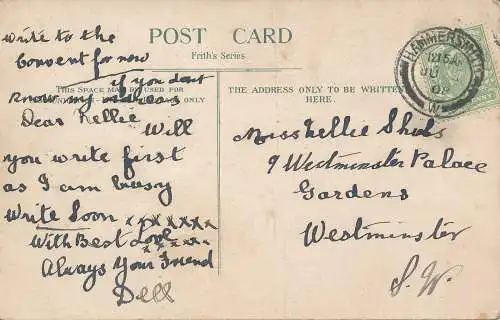 write to the
Convent for now
if you dont
know my address
POST CARD
Frith's Series
THIS SPACE MAY BE USED FOR
ONLY
THE ADDRESS ONLY TO BE WRITTEN
HERE.
Dear Nellie
Will
you write first
as I am busy
Write Soon x x x x x x
With Best Love x x x x x x
Always Your Friend
Dell
HAMMERSMITH
W
Miss Nellie
9 Westminster Palace
Gardens
Westminster
S.W.